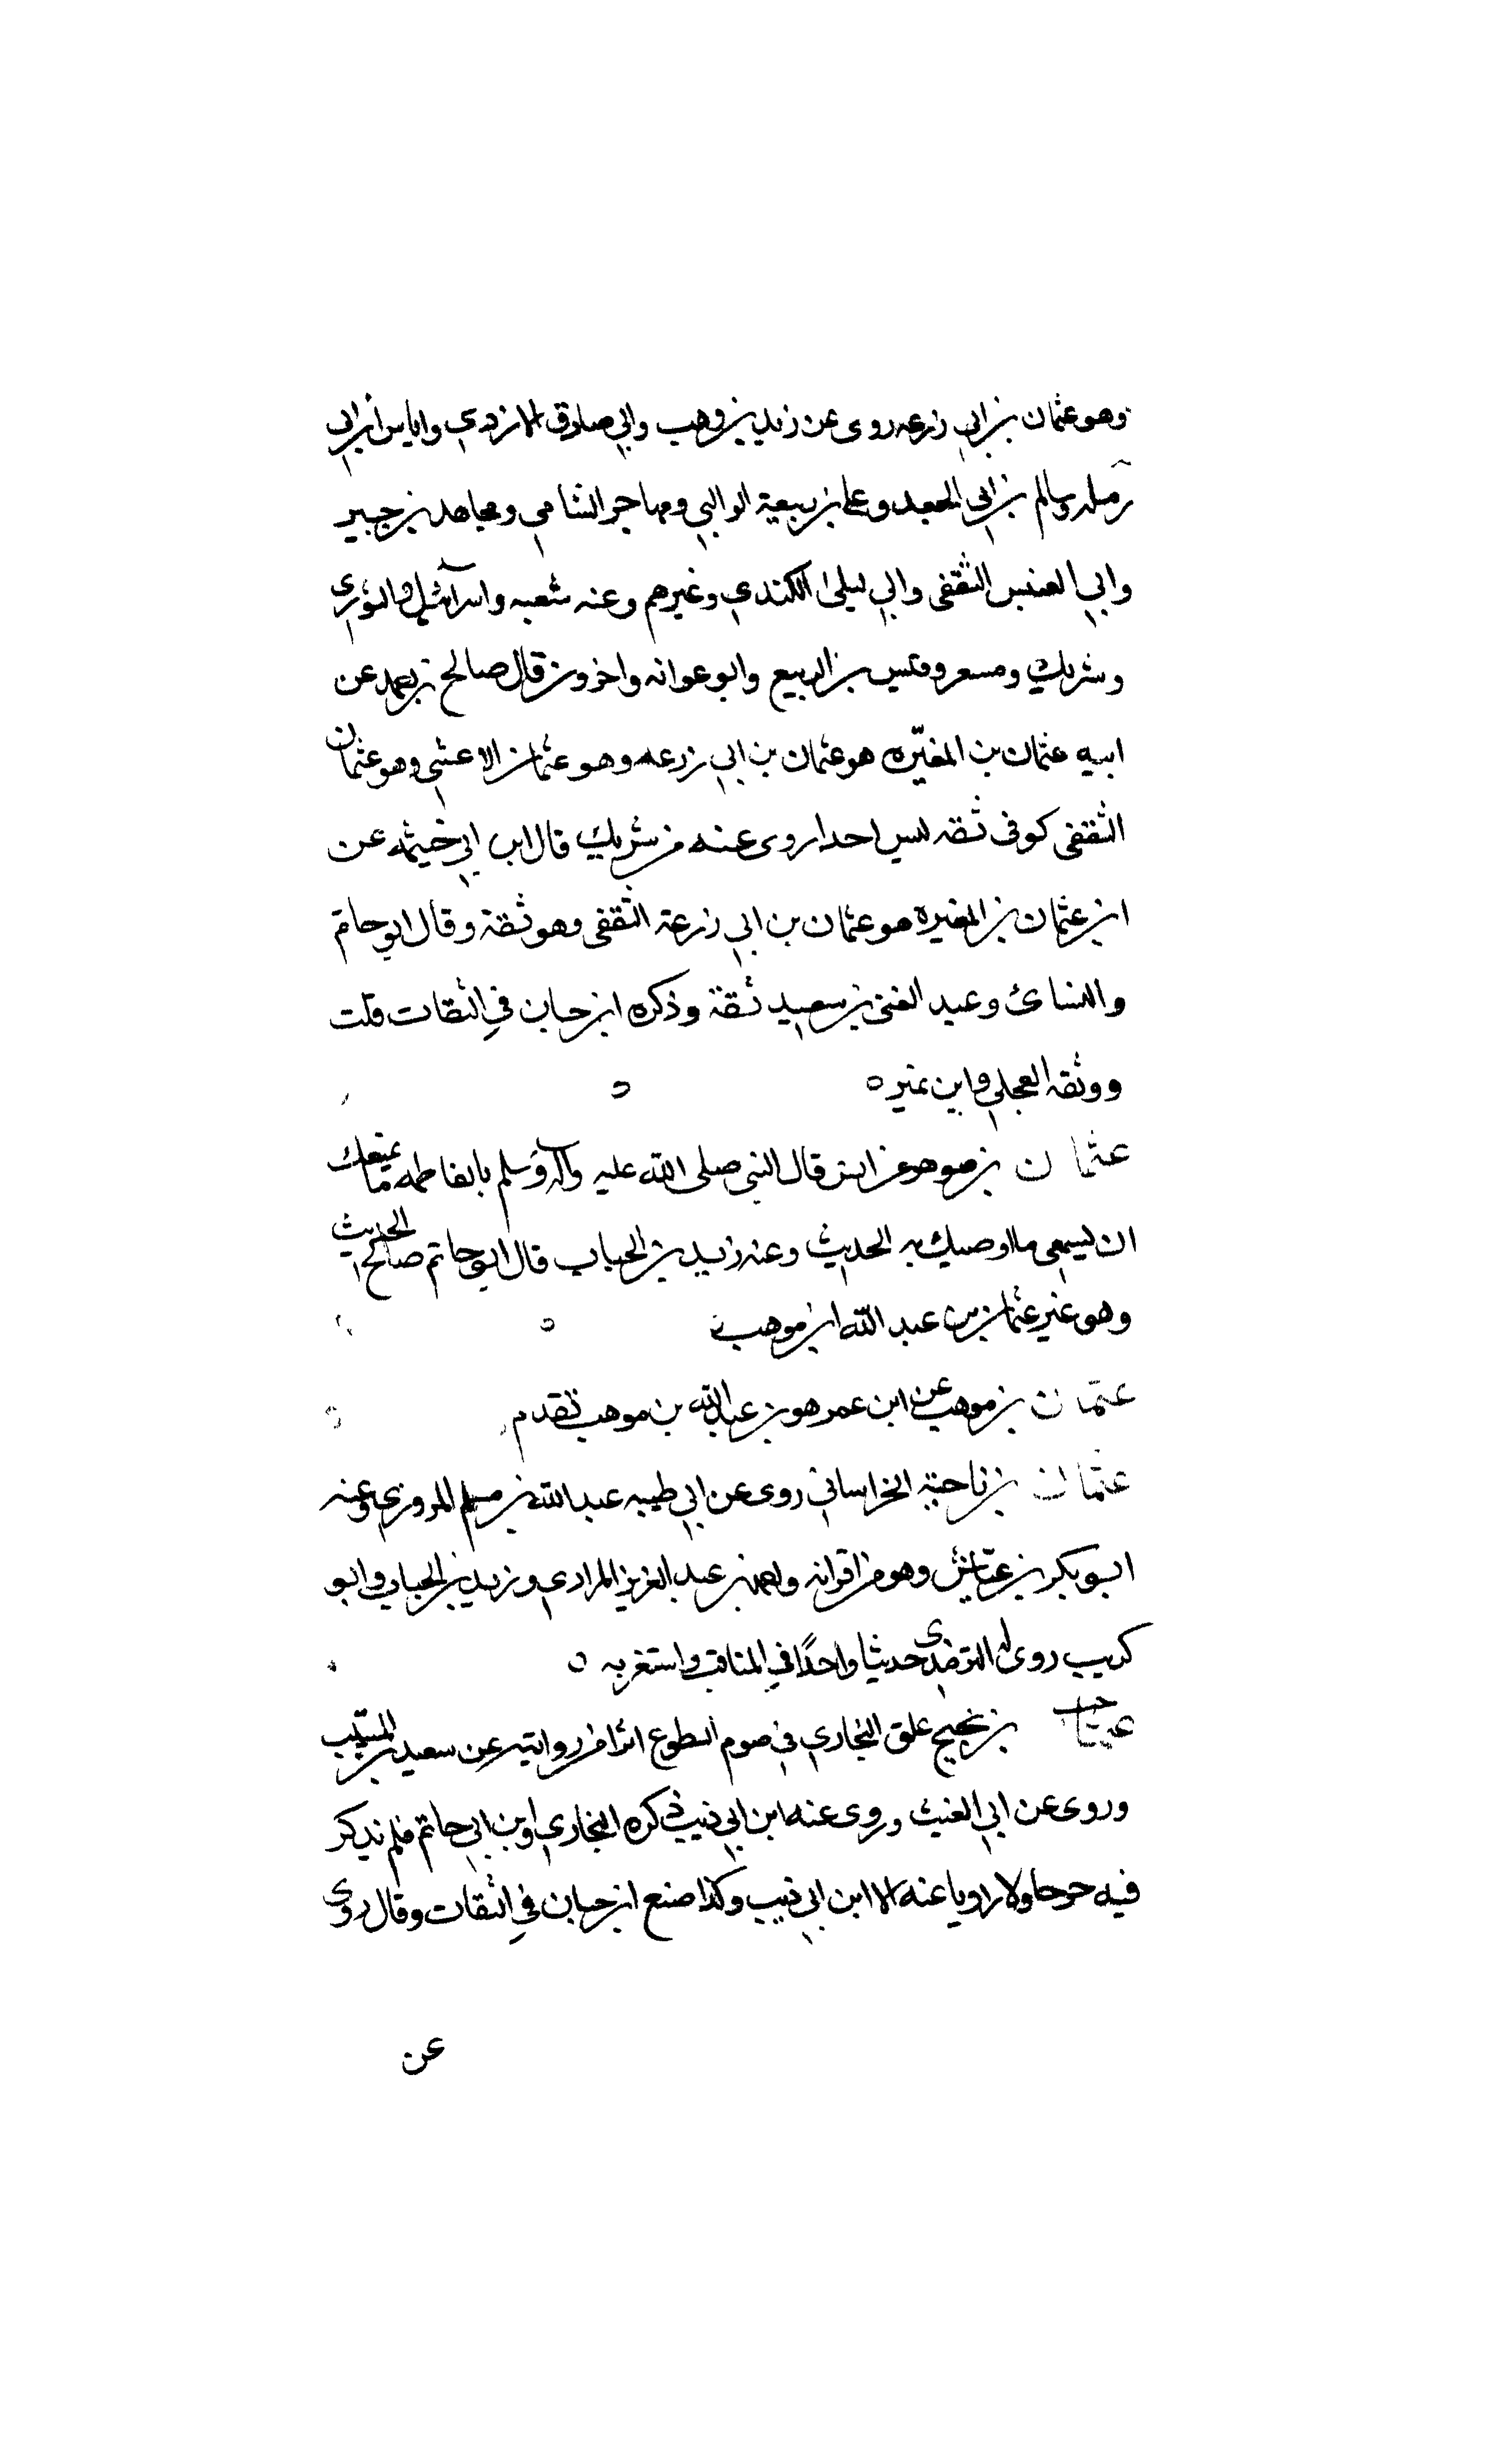 وهو عثمان بن ابي زرعه روى عن زيد بن وهب وابي صادق الازدي واياس ابن ابي
رمله وسالم بن ابي الجعد وعلي بن ربيعة الوالبي ومهاجر الشامي ومجاهد بن جبير
وابي العنبس الثقفى وابي ليلى الكندي وغيرهم وعنه شعبه واسرآئيل والثورى
وشريك ومسعر وقيس بن الربيع وابو عوانه واخرون قال صالح بن احمد عن
ابيه عثمان بن المغيّره هو عثمان بن ابي زرعه وهو عثمان الاعشى وهو عثمان
الثقفى كوفى ثقه ليس احدا روى عنه من شريك قال ابن ابي خيثمه عن
ابن عثمان بن المغيرة هو عثمان بن ابي زرعة الثقفى وهو ثقة وقال ابو حاتم
والنسائ وعبد الغنى بن سعيد ثقة وذكره ابن حبان في الثقات قلت
ووثقه العجلي وابن نمير ه
عثمان بن موهو عن انس قال النبي صلى الله عليه وآله وسلم يا بفاطمه ما يمنعك
ان تسمعى ما اوصيك به الحديث وعنه زيد بن الحباب قال ابو حاتم صالح الحديث
وهو غير عثمان بن عبد الله ابن موهب
عثمان بن موهب عن ابن عمر هو بن عبد الله بن موهب تقدم
عثمان بن ناجية الخراساني روى عن ابي طيبه عبد الله بن مسلم المروزي وعنه
ابو بكر بن عيّاش وهو من اقرانه واحمد بن عبد العزيز المرادي وزيد بن الحباب وابو
كريب روى له الترمذى حديثا واحدًا في المناقب واستغربه ه
بن نجيح علق البخاري في صوم التطوع اثرا من روايته عن سعيد بن المسيّب
وروى عن ابي الغيث وروى عنه ابن ابي ذيب ذكره البخاري وابن ابي حاتم فلم يذكر
فيه جرحا ولا راويا عنه الا ابن ابي ذيب وكذا صنع ابن حبان في الثقات وقال روى
عن